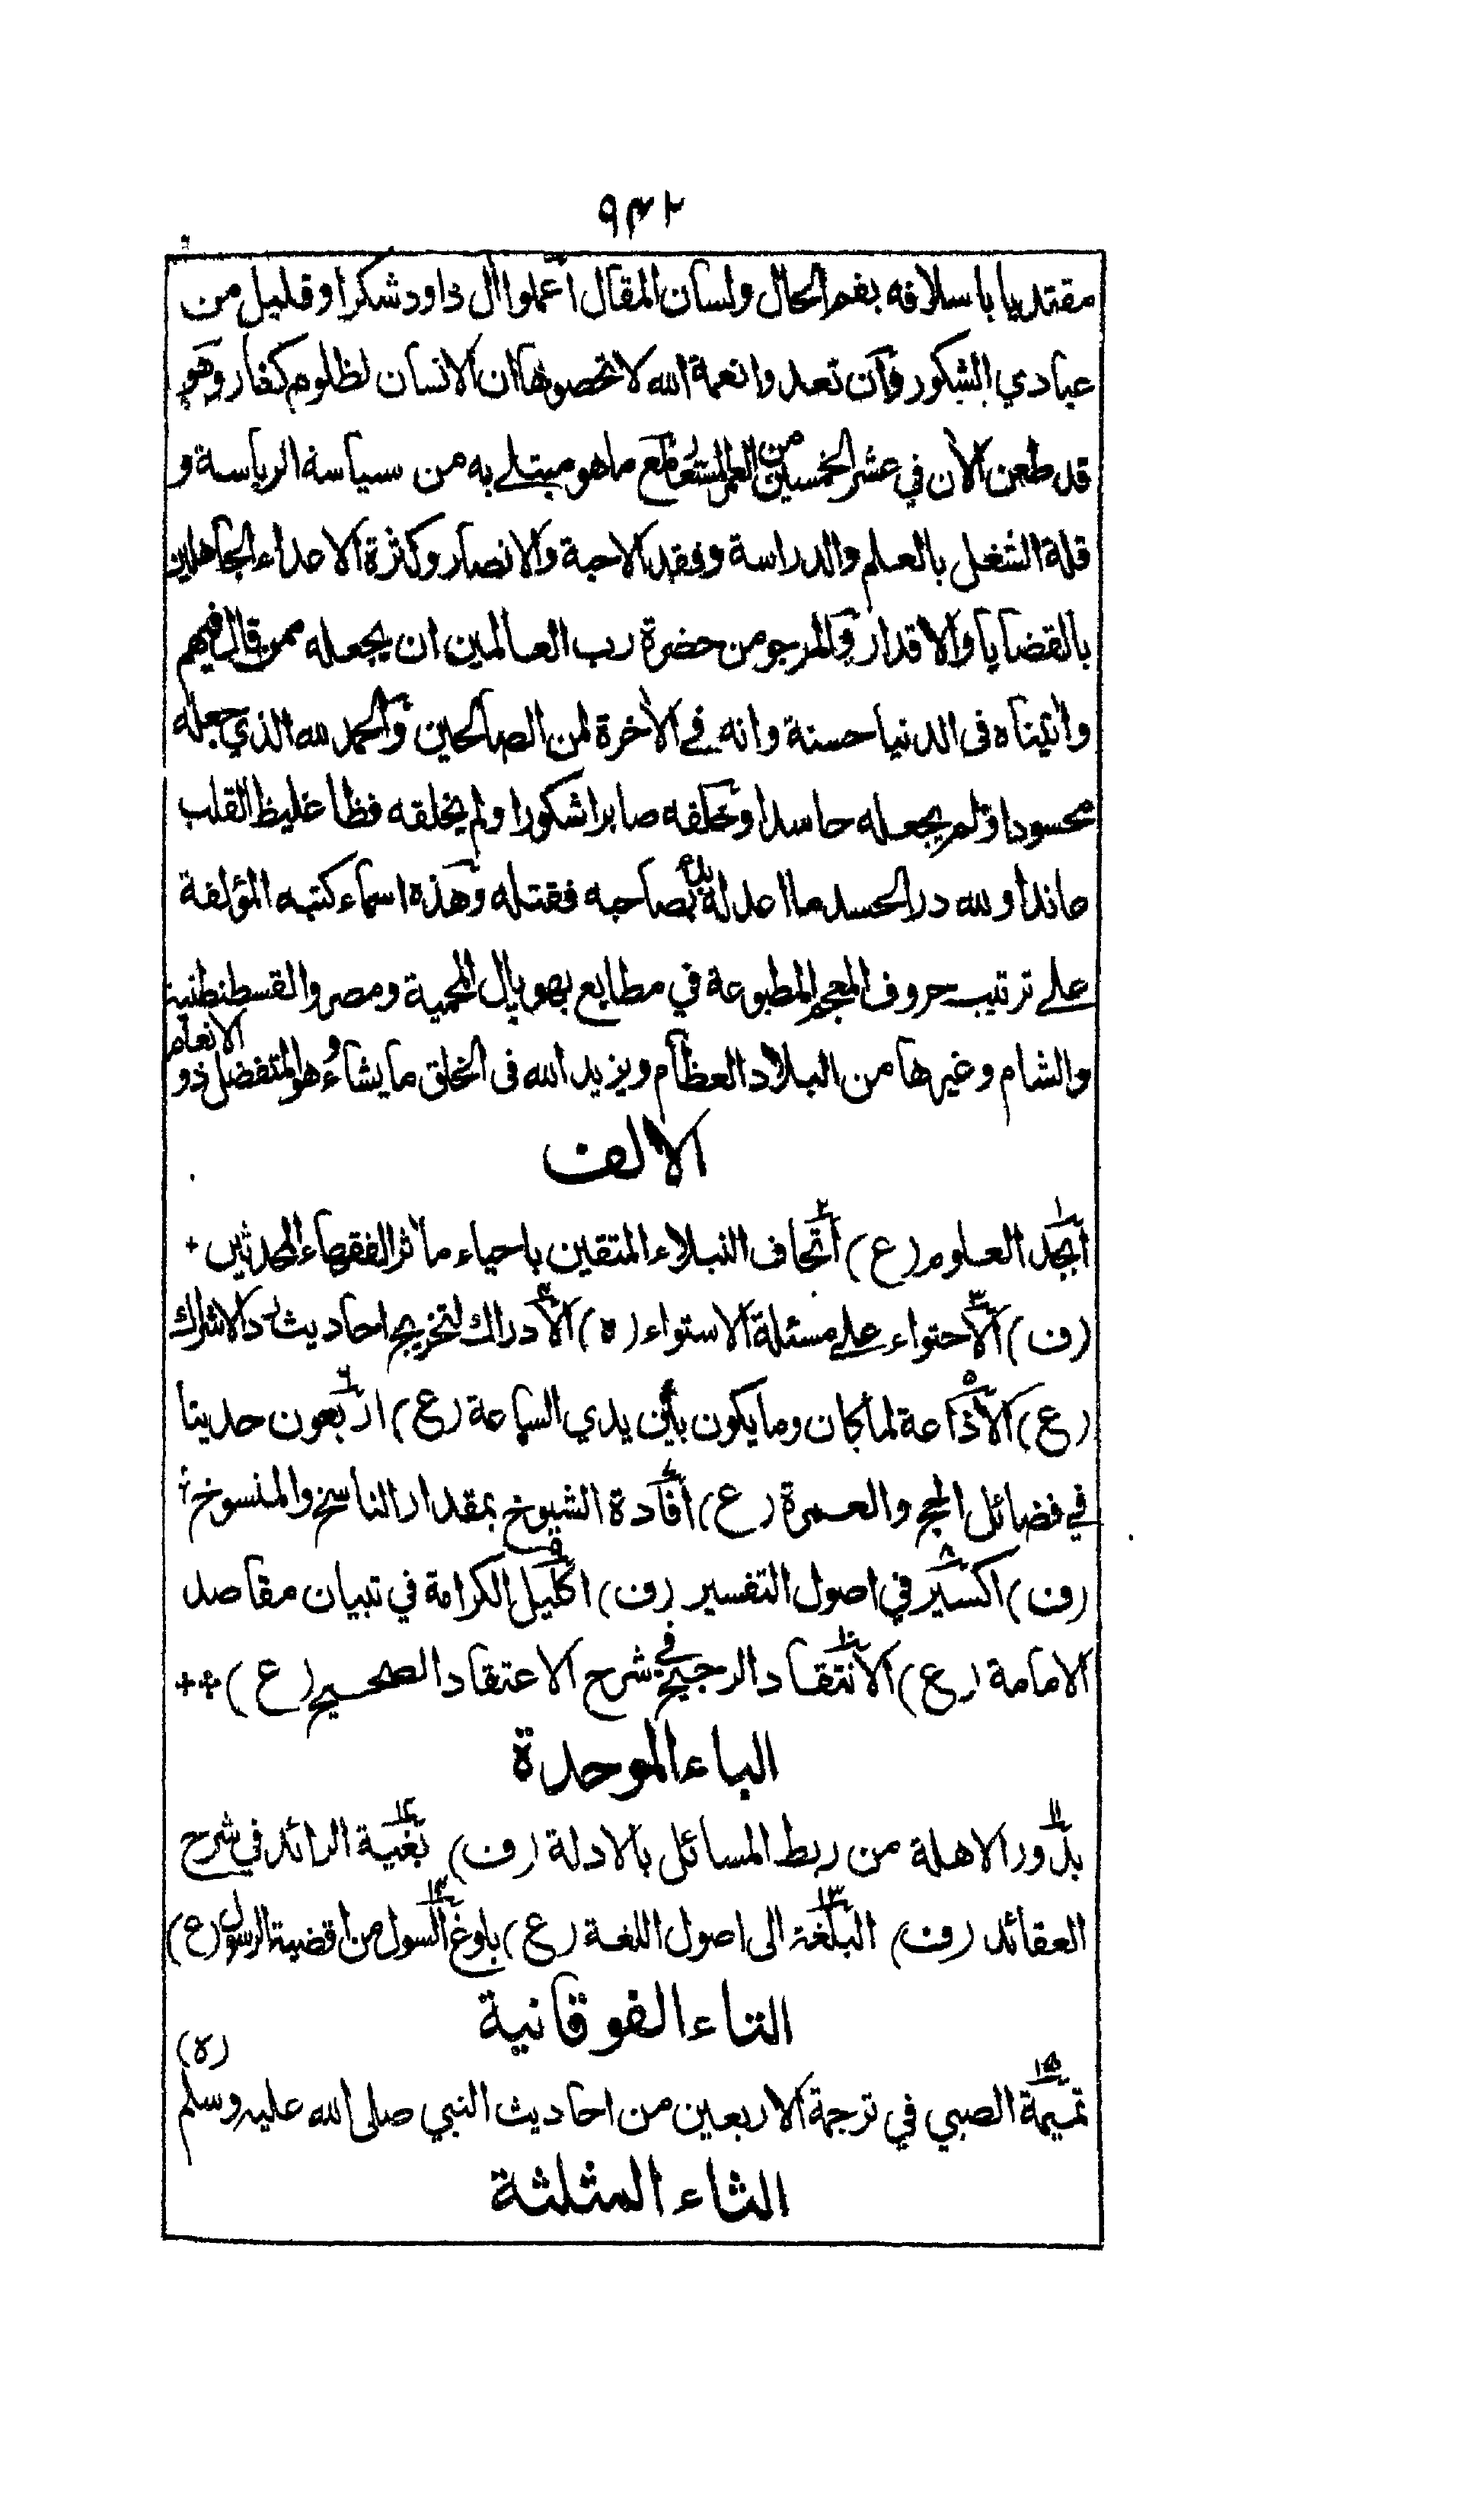 ٩٤٢
مقتديا باسلافه بفم الحال ولسان المقال اعملوا آل داود شكرا وقليل من
عبادي الشكور وان تعدوا نعمة الله لا تحصوها ان الانسان لظلوم كفار وهو
قد طعن الآن في عشر الخمسين من العمر المستعار مع ما هو مبتلى به من سياسة الرياسة و
قلة الشغل بالعلم والدراسة وفقد الاحبة والانصار وكثرة الاعداء الجاهلين
بالقضايا والاقدار والمرجو من حضرة رب العالمين ان يجعله ممن قال فيهم
واتيناه في الدنيا حسنة وانه في الآخرة لمن الصالحين والحمد لله الذي جعله
محسودا ولم يجعله حاسدا وخلقه صابرا شكورا ولم يخلقه فظا غليظ القلب
عاندا ولله در الحسد ما اعدله بدء بصاحبه فقتله وهذه اسماء كتبه المؤلفة
على ترتيب حروف المعجم المطبوعة في مطابع بهوپال المحمية ومصر والقسطنطنية
والشام وغيرها من البلاد العظام ويزيد الله في الخلق ما يشاء وهو المتفضل ذو الانعام
الالف
١ ابجد العلوم (ع) ٢ اتحاف النبلاء المتقين باحياء مآثر الفقهاء المحدثين +
(ف) ٣ الاحتواء على مسئلة الاستواء (ه) ٤ الادراك لتخريج احاديث رد الاشراك
(ع) ٥ الاذاعة لما كان وما يكون بين يدي الساعة (ع) ٦ اربعون حديثا
في فضائل الحج والعمرة (ع) ٧ افادة الشيوخ بمقدار الناسخ والمنسوخ
(ف) ٨ اكسير في اصول التفسير (ف) ٩ اكليل الكرامة في تبيان مقاصد
الامامة (ع) ١٠ الانتقاد الرجيح في شرح الاعتقاد الصحيح (ع) +++
الباء الموحدة
١١ بدور الاهلة من ربط المسائل بالادلة (ف) ١٢ بغية الرائد في شرح
العقائد (ف) ١٣ البلغة الى اصول اللغة (ع) ١٤ بلوغ السول من اقضية الرسول (ع)
التاء الفوقانية
١٥ تميمة الصبي في ترجمة الاربعين من احاديث النبي صلى الله عليه وسلم (ه)
الثاء المثلثة